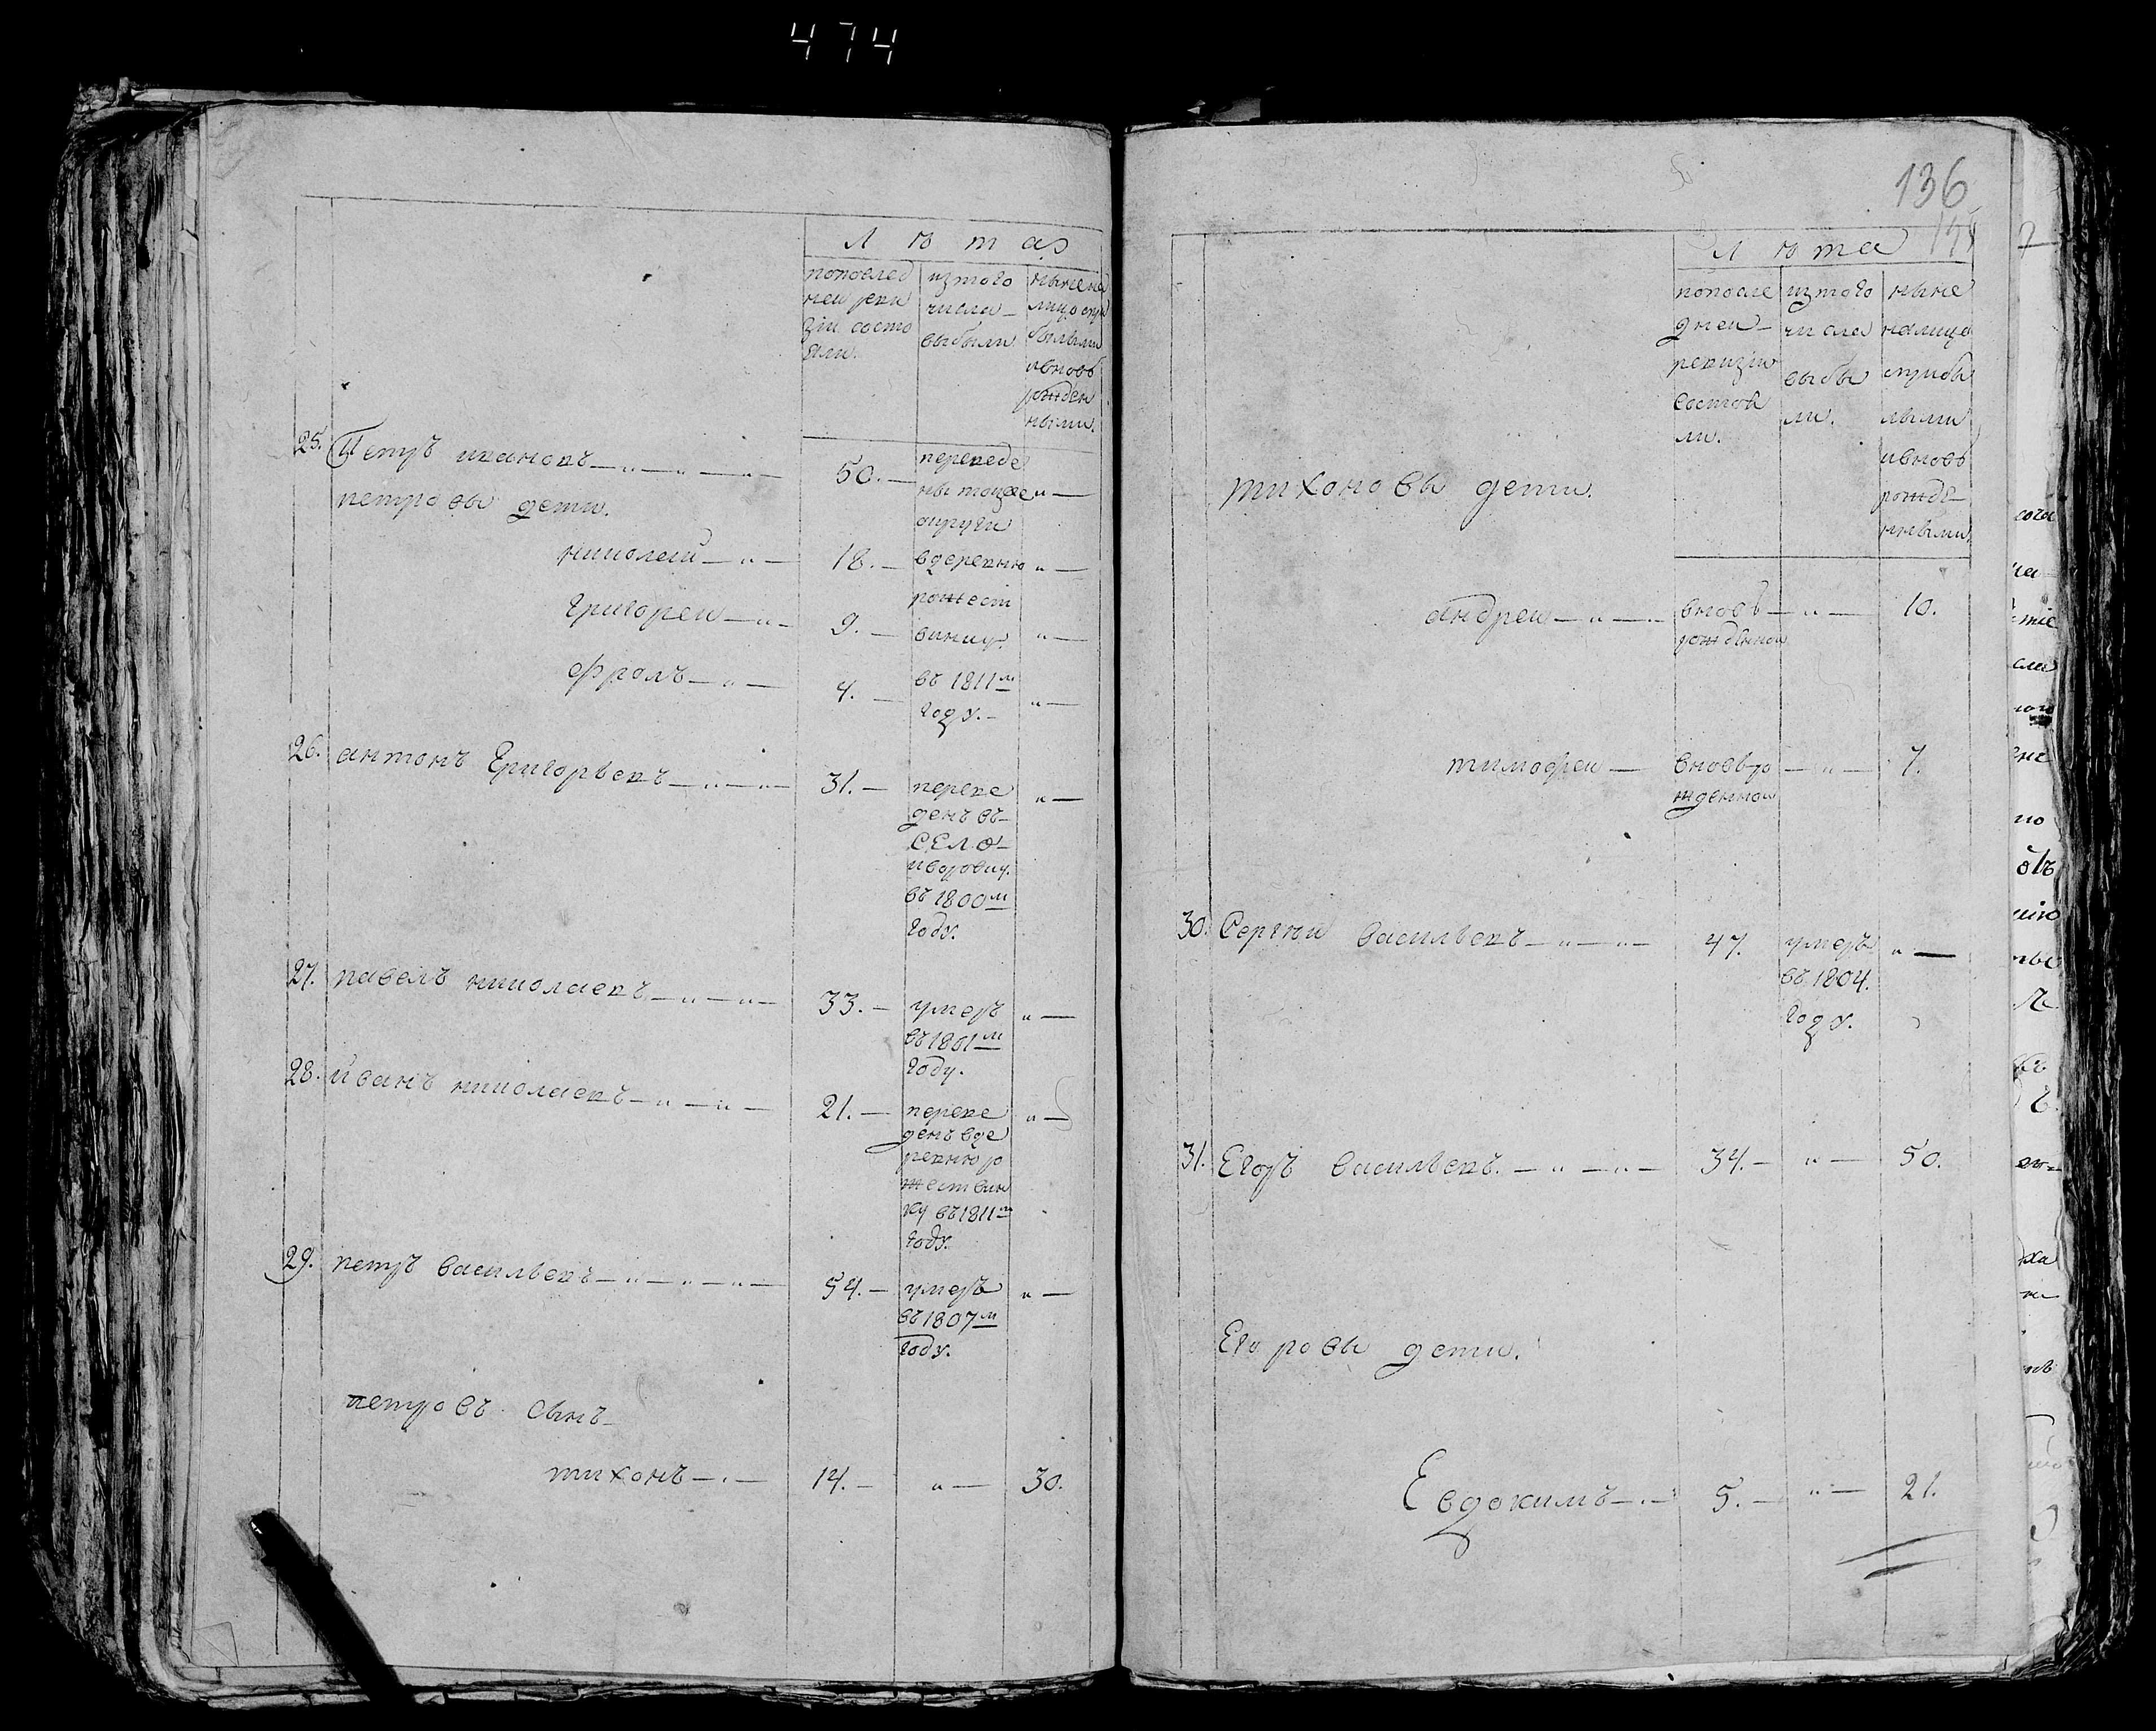 474
Л ѣ т а
попослед
неи реви
зіи состо
яли.
изтого
числа
выбыли
ныне на
лицо спри
былыми
ивновь
рожден
ными.
25. Петръ ивановъ — „ — „ — „ — 50. — переведе
ны тоцже „ —
петровы дети. округи
николай — „ — 18. — вдеревню „ —
рожест
Григореи — „ — 9. — винку „ —
Фролъ — „ — 4. — въ 1811м „ —
году. —
26. антонъ Григорьевъ — „ — „ — 31. — переве „ —
денъ въ
СЕЛО
въ 1800м
году.
27. павелъ николаевъ — „ — „ — 33. — умеръ „ —
въ 1801м
году.
28. иванъ николаевъ — „ — „ — 21. — переве „ —
денъ вде
ревню ро
жествин
ку въ 1811м
году.
29. петръ васильевъ — „ — „ — „ — 54. — умеръ „ —
въ 1807м
году.
петровъ сынъ
тихонъ — „ — 14. — „ — 30.
136
Л ѣ т а
попосле
днеи
ревизіи
состоя
ли.
изтого
числа
выбы
ли.
ныне
налицо
сприбы
лыми
ивновь
рожде
нными.
тихоновы дети.
андреи — „ — вновь — „ — 10.
рожденнои
тимофеи — вновьро — „ — 7.
жденнои
30. Сергѣи васильевъ — „ — „ — 47. умеръ „ —
въ 1804.
году.
31. Егоръ васильевъ. — „ — „ — 34. — „ — 50.
Егоровы дети.
Евдокимъ — „ — 5. — „ — 21.